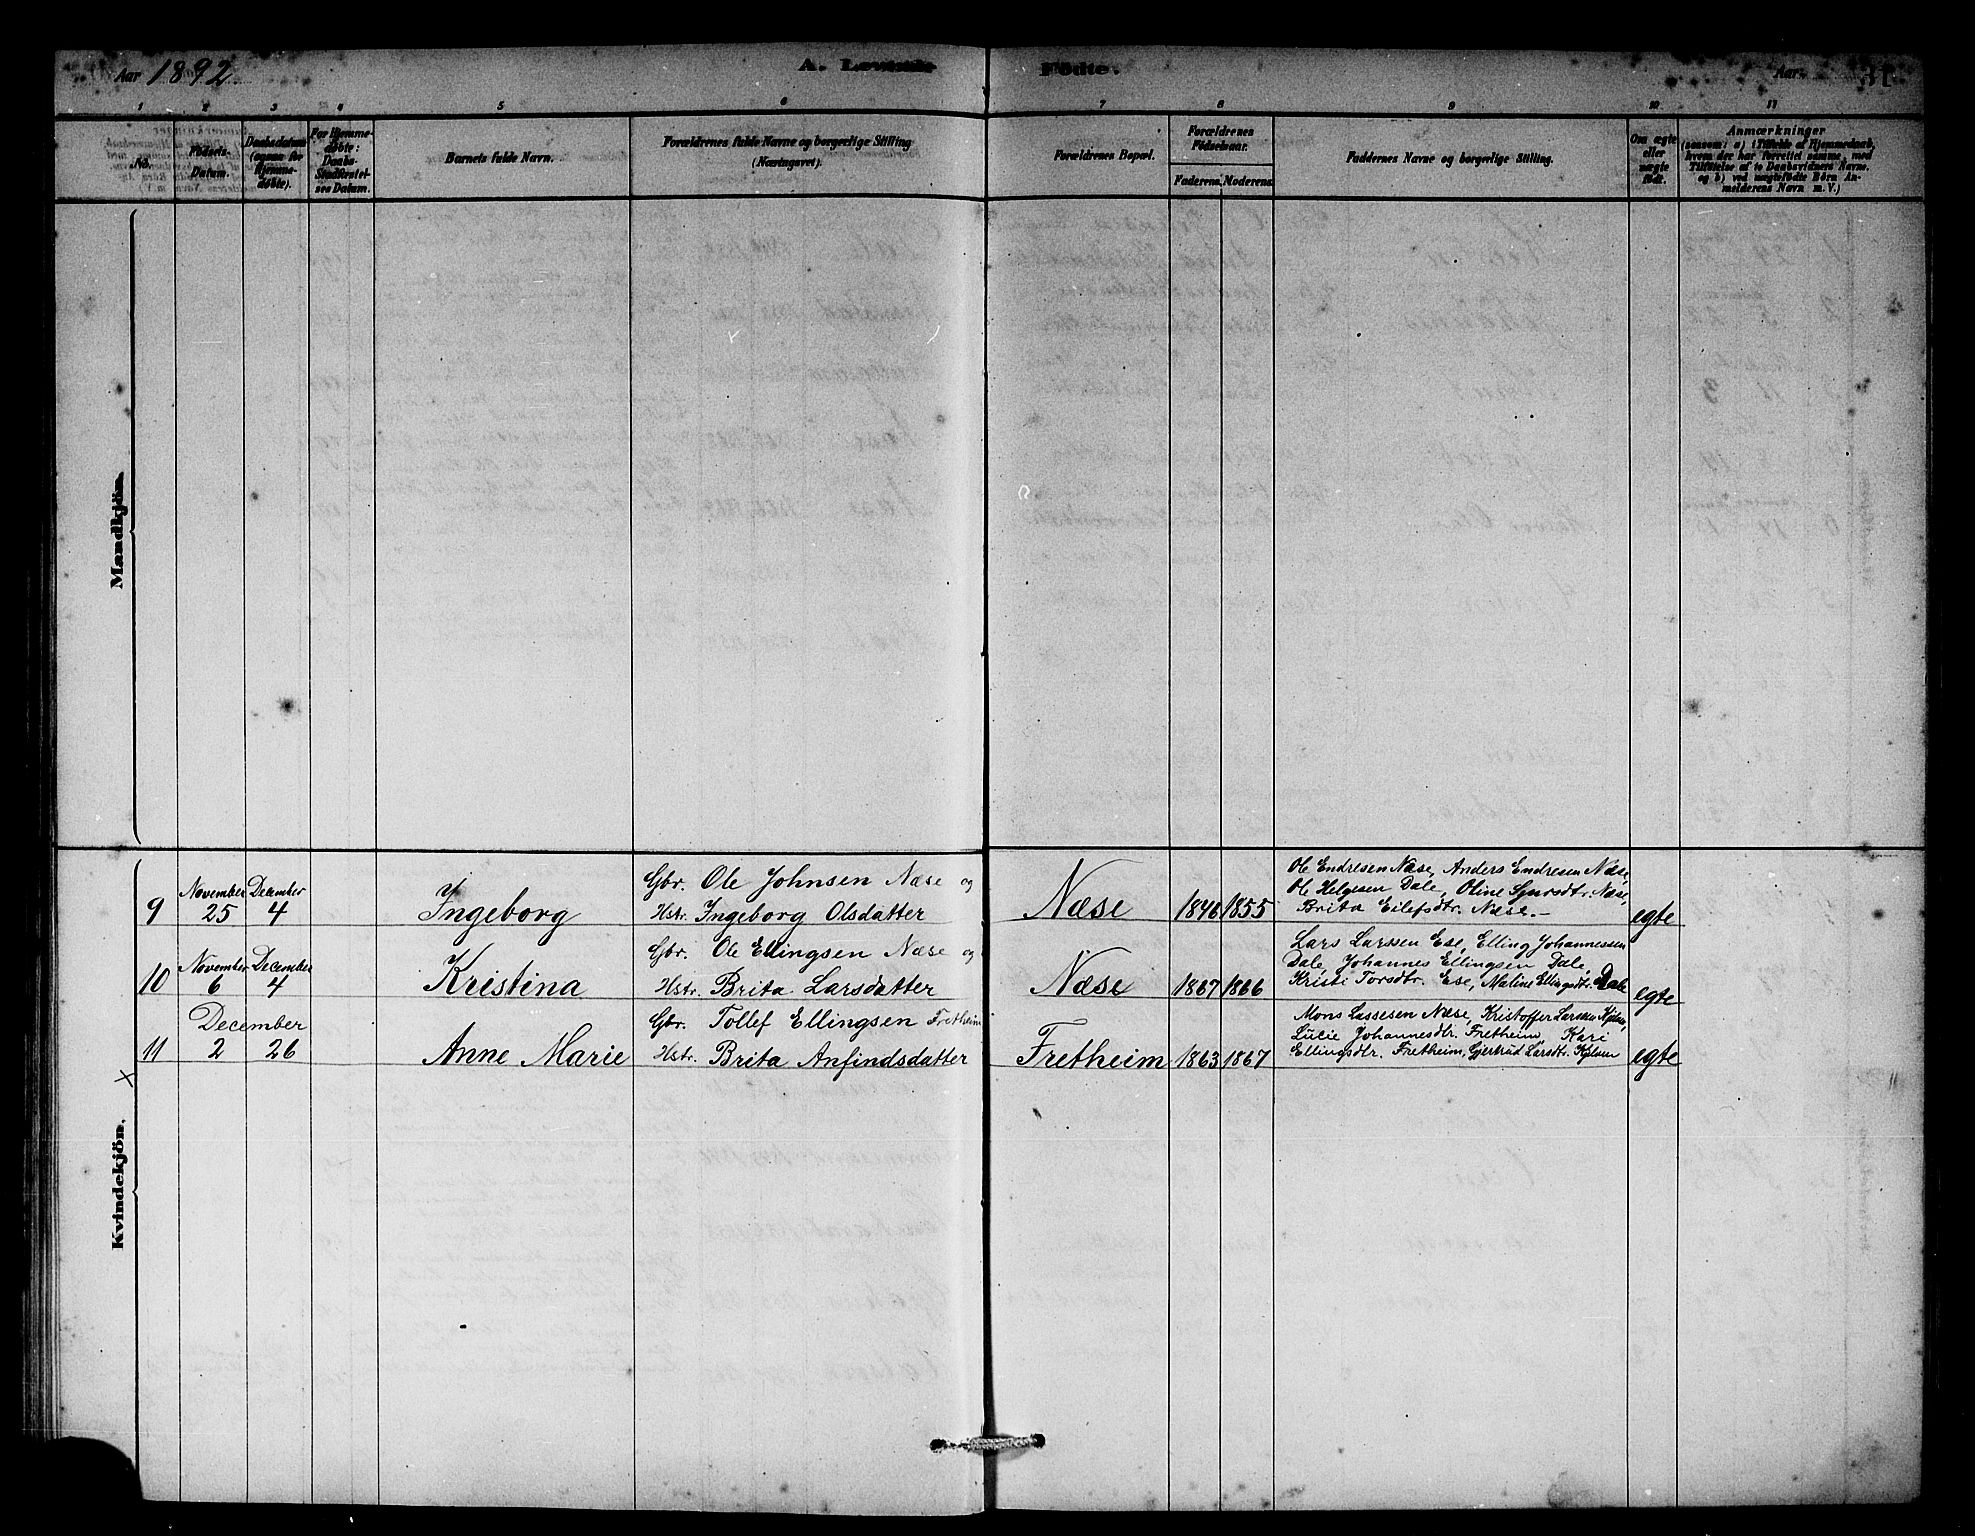 Aar 1892
A. Levende Födte.
Aar 31
1 2 3 4 5 6 7 8 9 10 11
No.
Födsels-
Datum.
Daabsdatum
(ogsaa for
Hjemme-
döbte).
For Hjemme-
döbte:
Daabs-
Stadfæstel-
ses Datum.
Barnets fulde Navn.
Forældrenes fulde Navne og borgerlige Stilling
(Næringsvei).
Forældrenes Bopæl.
Forældrenes
Födselsaar.
Faderens. Moderens.
Faddernes Navne og borgerlige Stilling.
Om ægte
eller
uægte
födt.
Anmærkninger
(saasom: a) i Tilfælde af Hjemmedaab,
hvem der har forrettet samme, med
Tilföielse af to Daabsvidners Navne.
og b) ved uægtefödte Börn An-
melderens Navn m. V.)
Mandkjön.
Kvindekjön.
9 November 25 December 4 Ingeborg
Gbr. Ole Johnsen Næse og
Hstr. Ingeborg Olsdatter
Næse 1846 1855
Ole Endresen Næse, Anders Endresen Næse
Ole Helgesen Dale, Oline Sjursdtr. Næse,
Brita Eilefsdtr. Næse.-
egte
10 November 6 December 4 Kristina
Gbr. Ole Ellingsen Næse og
Hstr. Brita Larsdatter
Næse 1867 1866
Lars Larssen Ese, Elling Johannessen
Dale, Johannes Ellingsen Dale,
Kristi Torsdtr. Ese, Maline Ellingsdtr. Dale
egte
11 December 2 26 Anne Marie
Gbr. Tollef Ellingsen Fretheim
Hstr. Brita Anfindsdatter
Fretheim 1863 1867
Mons Lassesen Næse, Kristoffer Larssen
Lucie Johannesdtr. Fretheim, Kari
Ellingsdtr. Fretheim, Gjertrud Larsdtr.
egte